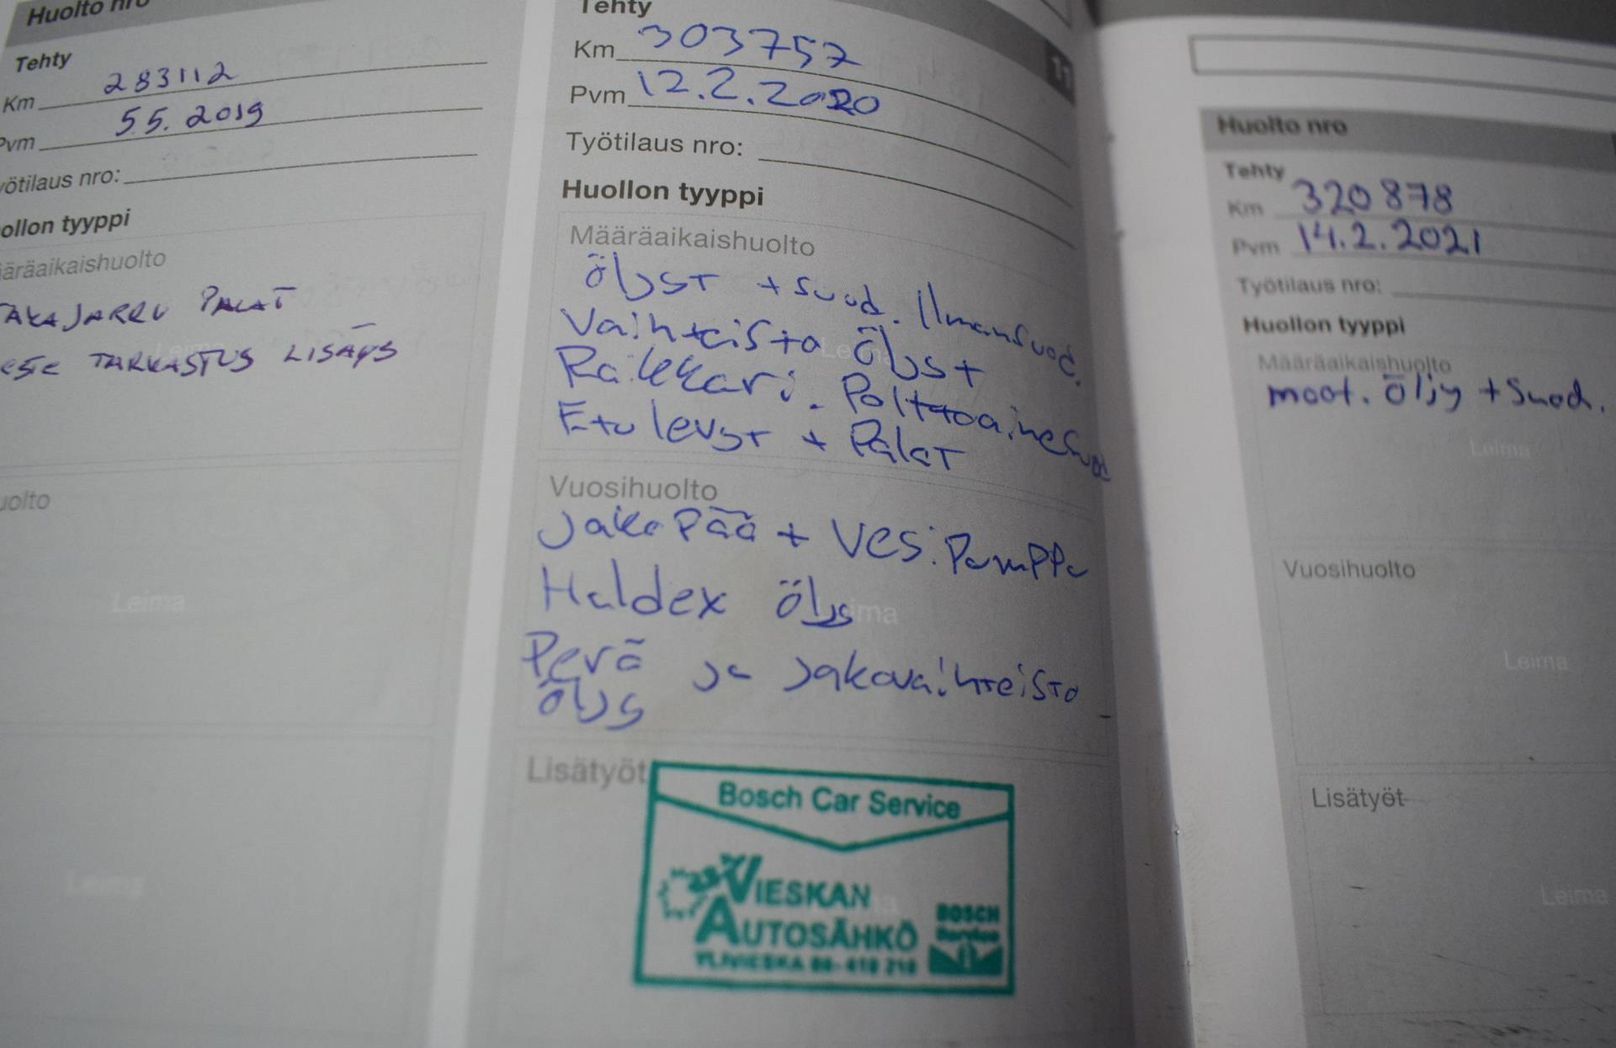 Huolto nro
Tehty
Km 283112
Pvm 5.5. 2019
yötilaus nro:
ollon tyyppi
ääräaikaishuolto
TAKAJARRU PALAT
TARKASTUS LISÄYS
uolto
Leima
Leima
Tehty
11
Km 303757
Pvm 12.2.2020
Työtilaus nro:
Huollon tyyppi
Määräaikaishuolto
Öljyt + suod. Ilmansuod.
Vaihteisto Öljyt
Raikkari. Polttoainesuod
Etulevyt + Palat
Vuosihuolto
Jakopää + Vesipumppu
Haldex Öljy
Perä ja jakovaihteisto
Öljy
Lisätyöt
Bosch Car Service
VIESKAN
AUTOSÄHKÖ
BOSCH
Service
YLIVIESKA 08-410 210
Huolto nro
Tehty
Km 320 878
Pvm 14.2.2021
Työtilaus nro:
Huollon tyyppi
Määräaikaishuolto
moot. öljy + suod.
Leima
Vuosihuolto
Leima
Lisätyöt
Leima